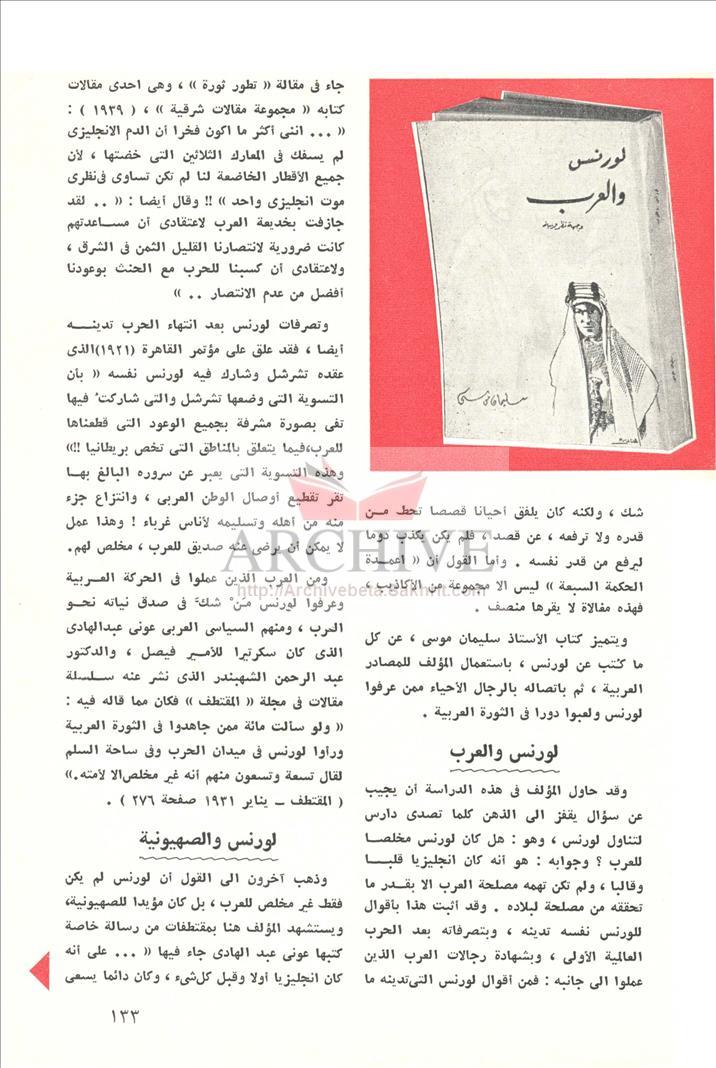 لورنس
والعرب
وجهة نظر عربية
سليمان موسى
شك ، ولكنه كان يلفق أحيانا قصصا تحط مـن
قدره ولا ترفعه ، عن قصد ، فلم يكن يكذب دوما
ليرفع من قدر نفسه . وأما القول أن « أعمـدة
الحكمة السبعة » ليس الا مجموعة من الأكاذيب ،
فهذه مغالاة لا يقرها منصف .
ويتميز كتاب الأستاذ سليمان موسى ، عن كل
ما كُتب عن لورنس ، باستعمال المؤلف للمصادر
العربية ، ثم باتصاله بالرجال الأحياء ممن عرفوا
لورنس ولعبوا دورا فى الثورة العربية .
لورنس والعرب
وقد حاول المؤلف فى هذه الدراسة أن يجيب
عن سؤال يقفز الى الذهن كلما تصدى دارس
لتناول لورنس ، وهو : هل كان لورنس مخلصـا
للعرب ؟ وجوابه : هو أنه كان انجليزيا قلبـا
وقالبا ، ولم تكن تهمه مصلحة العرب الا بقـدر ما
تحققه من مصلحة لبلاده . وقد أثبت هذا بأقوال
للورنس نفسه تدينه ، وبتصرفاته بعد الحرب
العالمية الأولى ، وبشهادة رجالات العرب الذين
عملوا الى جانبه : فمن أقوال لورنس التى تدينه ما
جاء فى مقالة « تطور ثورة » ، وهى احدى مقالات
كتابه « مجموعة مقالات شرقية » ، ( ١٩٣٩ ) :
« ... اننى أكثر ما اكون فخرا أن الدم الانجليزى
لم يسفك فى المعارك الثلاثين التى خضتها ، لأن
جميع الأقطار الخاضعة لنا لم تكن تساوى فى نظرى
موت انجليزى واحد » !! وقال أيضا : « .. لقد
جازفت بخديعة العرب لاعتقادى أن مسـاعدتهم
كانت ضرورية لانتصارنا القليل الثمن فى الشرق ،
ولاعتقادى أن كسبنا للحرب مع الحنث بوعودنا
أفضل من عدم الانتصار .. »
وتصرفات لورنس بعد انتهاء الحرب تدينـــه
أيضا ، فقد علق على مؤتمر القاهرة (١٩٢١)الذى
عقده تشرشل وشارك فيه لورنس نفسه « بأن
التسوية التى وضعها تشرشل والتى شاركتُ فيها
تفى بصورة مشرفة بجميع الوعود التى قطعناها
للعرب،فيما يتعلق بالمناطق التى تخص بريطانيا !!»
وهذه التسوية التى يعبر عن سروره البالغ بهـا
تقر تقطيع أوصال الوطن العربى ، وانتزاع جزء
منه من أهله وتسليمه لأناس غرباء ! وهذا عمل
لا يمكن أن يرضى عنه صديق للعرب ، مخلص لهم.
ومن العرب الذين عملوا فى الحركة العـربية
وعرفوا لورنس مَنْ شكَّ فى صدق نياته نحـو
العرب ، ومنهم السياسى العربى عونى عبدالهادى
الذى كان سكرتيرا للأمير فيصل ، والدكتور
عبد الرحمن الشهبندر الذى نشر عنه سلـسلة
مقالات فى مجلة « المقتطف » فكان مما قاله فيه :
« ولو سألت مائة ممن جاهدوا فى الثورة العربية
ورأوا لورنس فى ميدان الحرب وفى ساحة السلم
لقال تسعة وتسعون منهم أنه غير مخلص الا لأمته.»
( المقتطف ــ يناير ١٩٣١ صفحة ٢٧٦ ) .
لورنس والصهيونية
وذهب آخرون الى القول أن لورنس لم يكن
فقط غير مخلص للعرب ، بل كان مؤيدا للصهيونية،
ويستشهد المؤلف هنا بمقتطفات من رسالة خاصة
كتبها عونى عبد الهادى جاء فيها « ... على أنه
كان انجليزيا أولا وقبل كل شىء ، وكان دائما يسعى
١٣٣
ARCHIVE
http://Archivebeta.Sakhrit.com